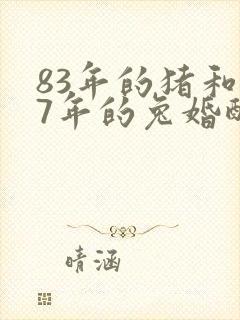 83年的猪和
7年的兔婚
晴涵